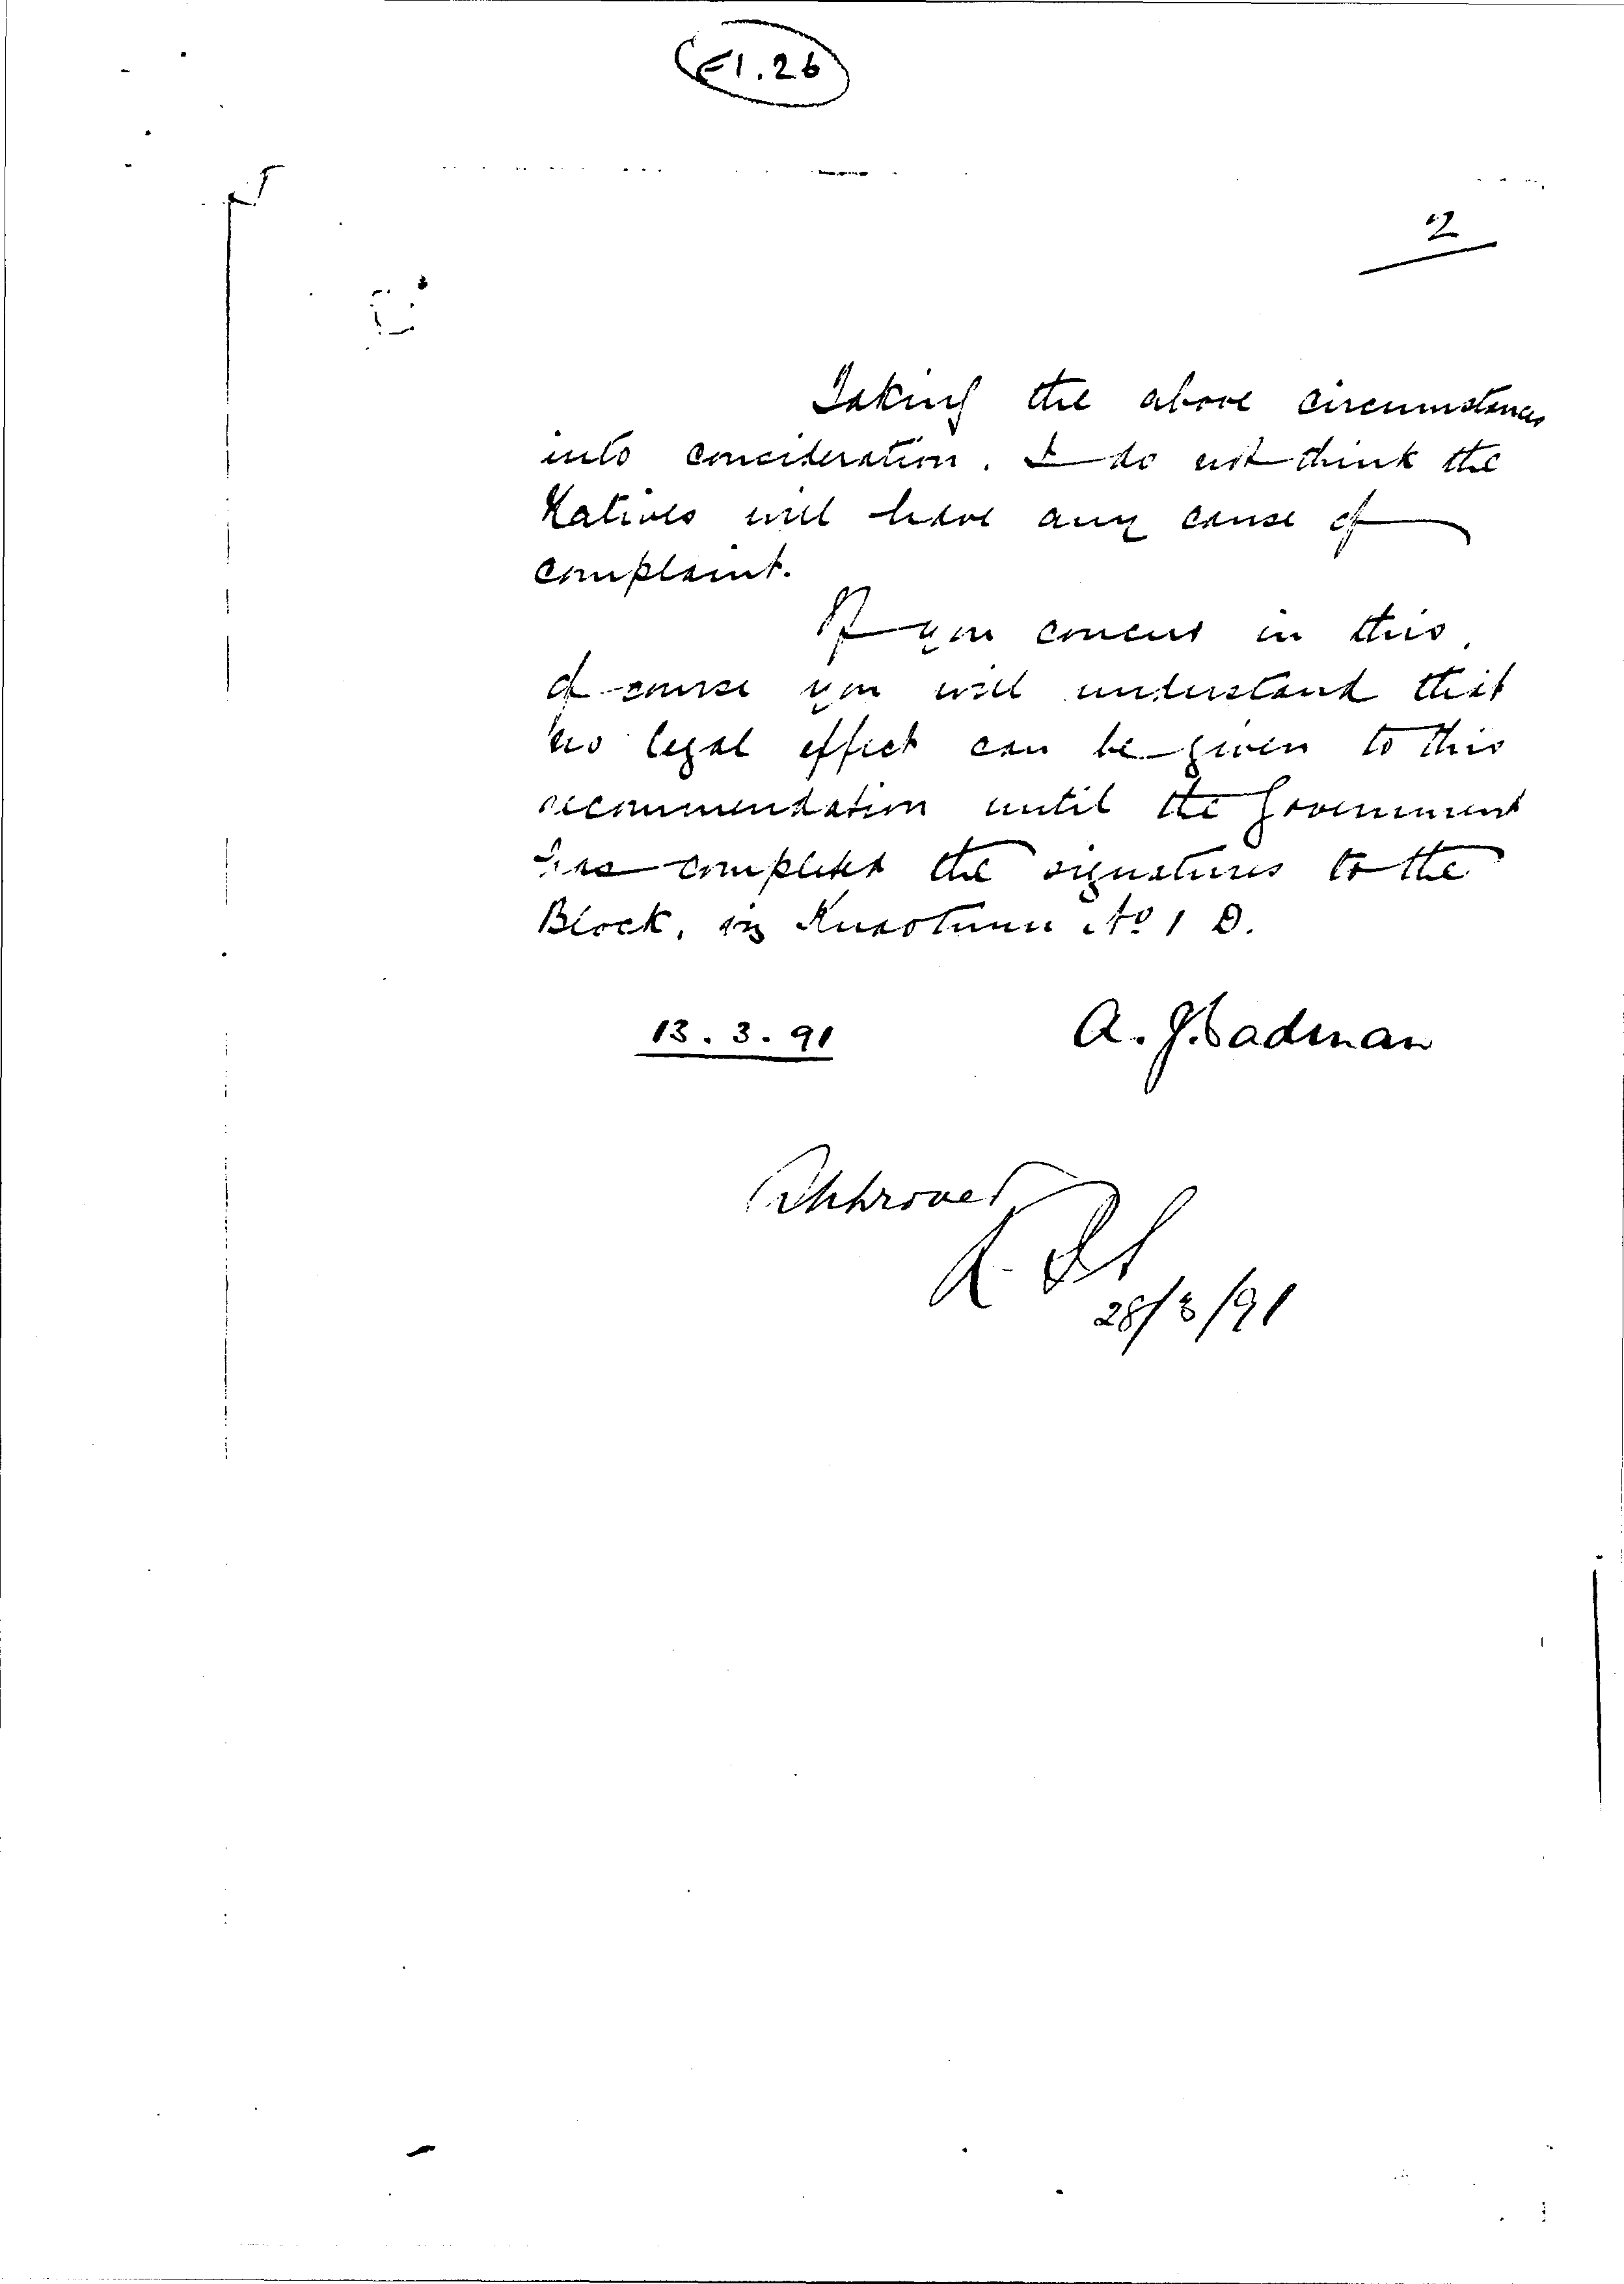 E1.26
2
Taking the above circumstances
into consideration. I do not think the
Natives will have any cause of
complaint.
If you concur in this,
of course you will understand that
no legal effect can be given to this
recommendation until the Government
has completed the signatures to the
Block, viz Kuaotunu No 1 D.
13.3.91
A. J. Cadman
Approved
28/3/91